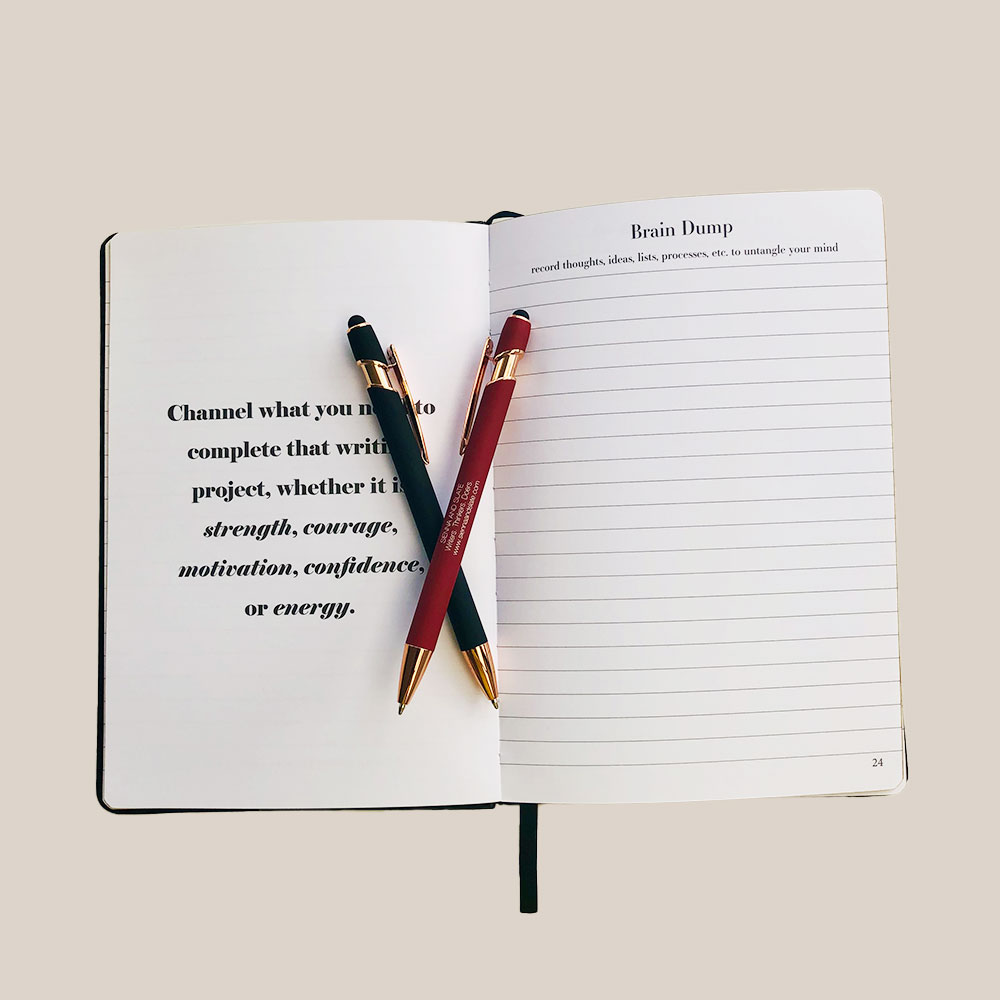 Channel what you to
complete that
project, whether it is
strength, courage,
motivation, confidence,
or energy.
Brain Dump
record thoughts, ideas, lists, processes, etc. to untangle your mind
24
SIENNA AND SLATE
Writers. Thinkers. Doers.
www.siennaandslate.com